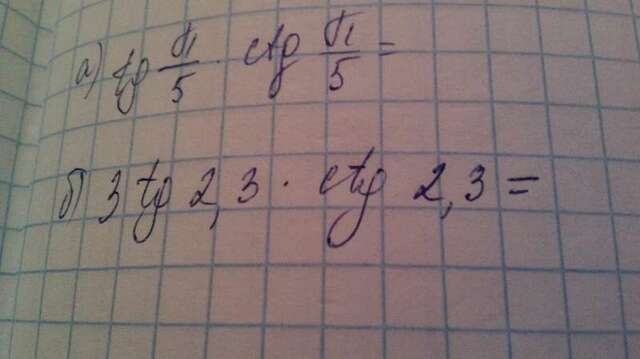 а) tg π/5 · ctg π/5 =
б) 3 tg 2,3 · ctg 2,3 =